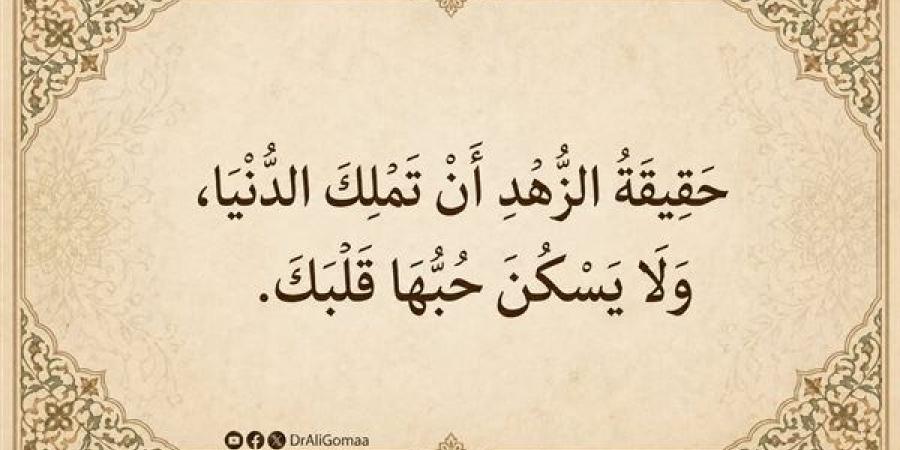 حَقِيقَةُ الزُّهْدِ أَنْ تَمْلِكَ الدُّنْيَا،
وَلَا يَسْكُنَ حُبُّهَا قَلْبَكَ.
DrAliGomaa